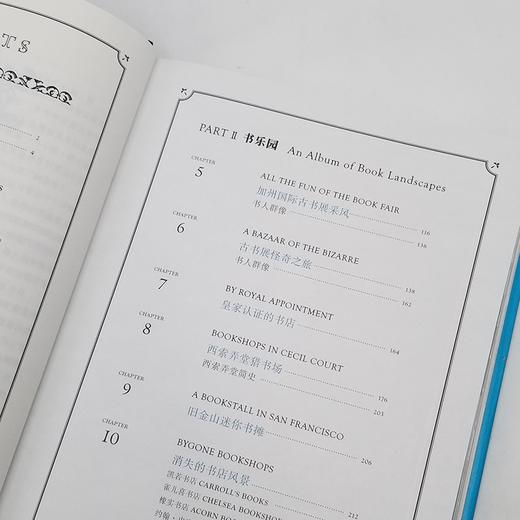 TS
2
4
PART II 书乐园 An Album of Book Landscapes
CHAPTER
5
ALL THE FUN OF THE BOOK FAIR
加州国际古书展采风 116
书人群像 136
CHAPTER
6
A BAZAAR OF THE BIZARRE
古书展怪奇之旅 138
书人群像 162
CHAPTER
7
BY ROYAL APPOINTMENT
皇家认证的书店 164
CHAPTER
8
BOOKSHOPS IN CECIL COURT
西索弄堂猎书场 176
西索弄堂简史 203
CHAPTER
9
A BOOKSTALL IN SAN FRANCISCO
旧金山迷你书摊 206
CHAPTER
10
BYGONE BOOKSHOPS
消失的书店风景 212
凯若书店 CARROLL'S BOOKS
雀儿喜书店 CHELSEA BOOKSHOP
橡实书店 ACORN BOO
约翰